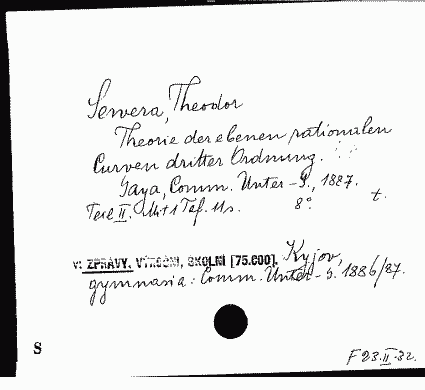 Sewera, Theodor
Theorie der ebenen rationalen
Curven dritter Ordnung.
Gaya, Comm. Unter-G., 1887.
Teil II. Mit 1 Taf. 11s. 8°. t.
v: ZPRÁVY, VÝROČNÍ, ŠKOLNÍ [75.600]. Kyjov,
gymnasia: Comm. Unter-G. 1886/87.
S
F 23.II.32.